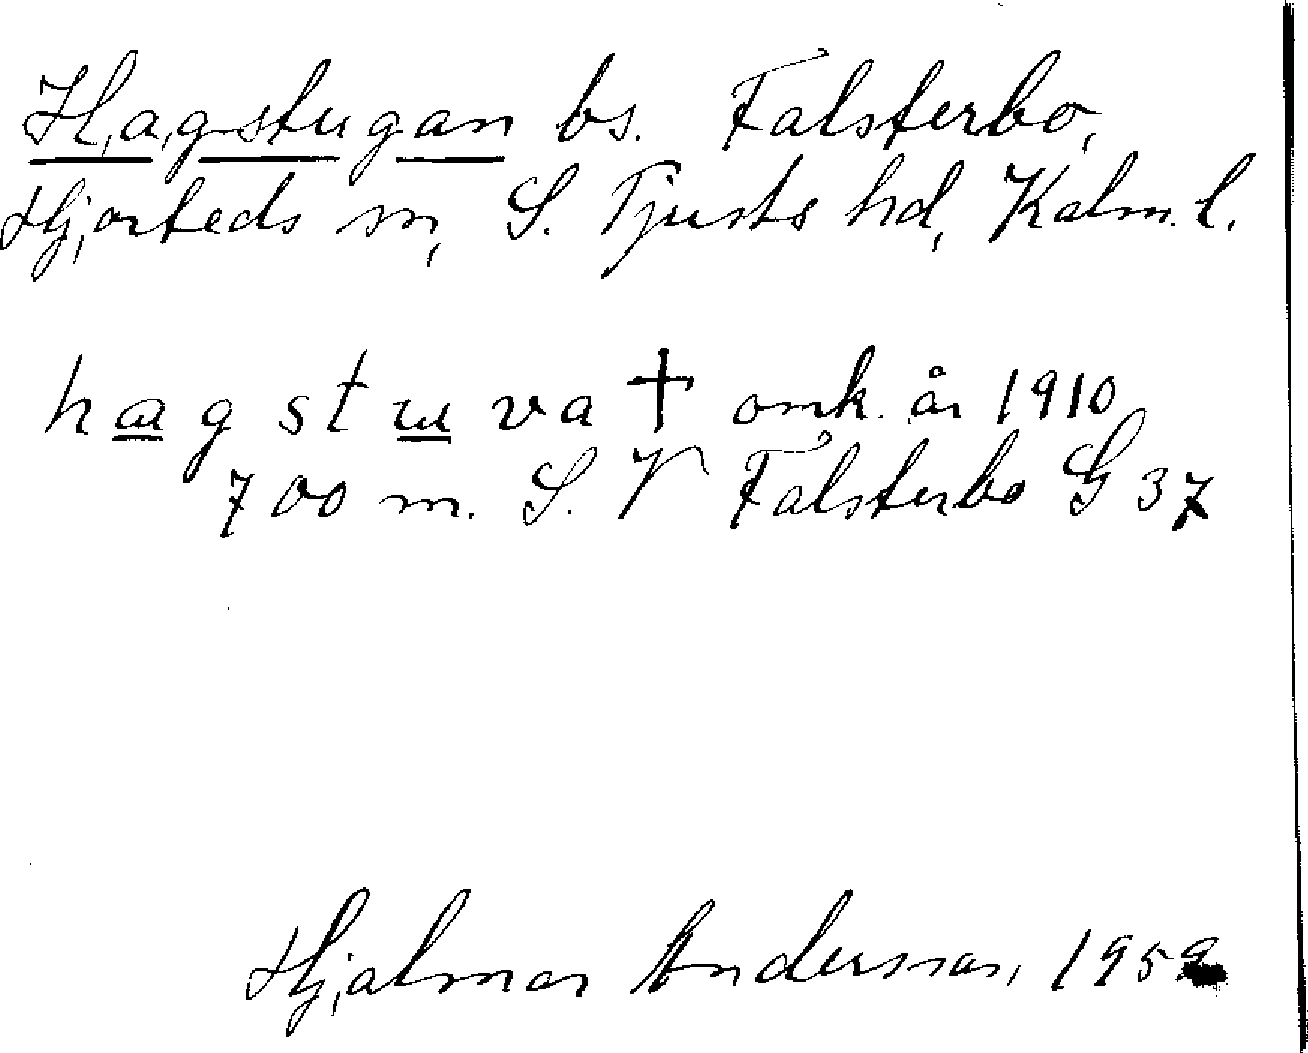 Hagstugan bs. Falsterbo,
Hjorteds sn, S. Tjusts hd, Kalm. l.
hagstuva † omk. år 1910
700 m. S. V Falsterbo G 37
Hjalmar Andersson, 1959